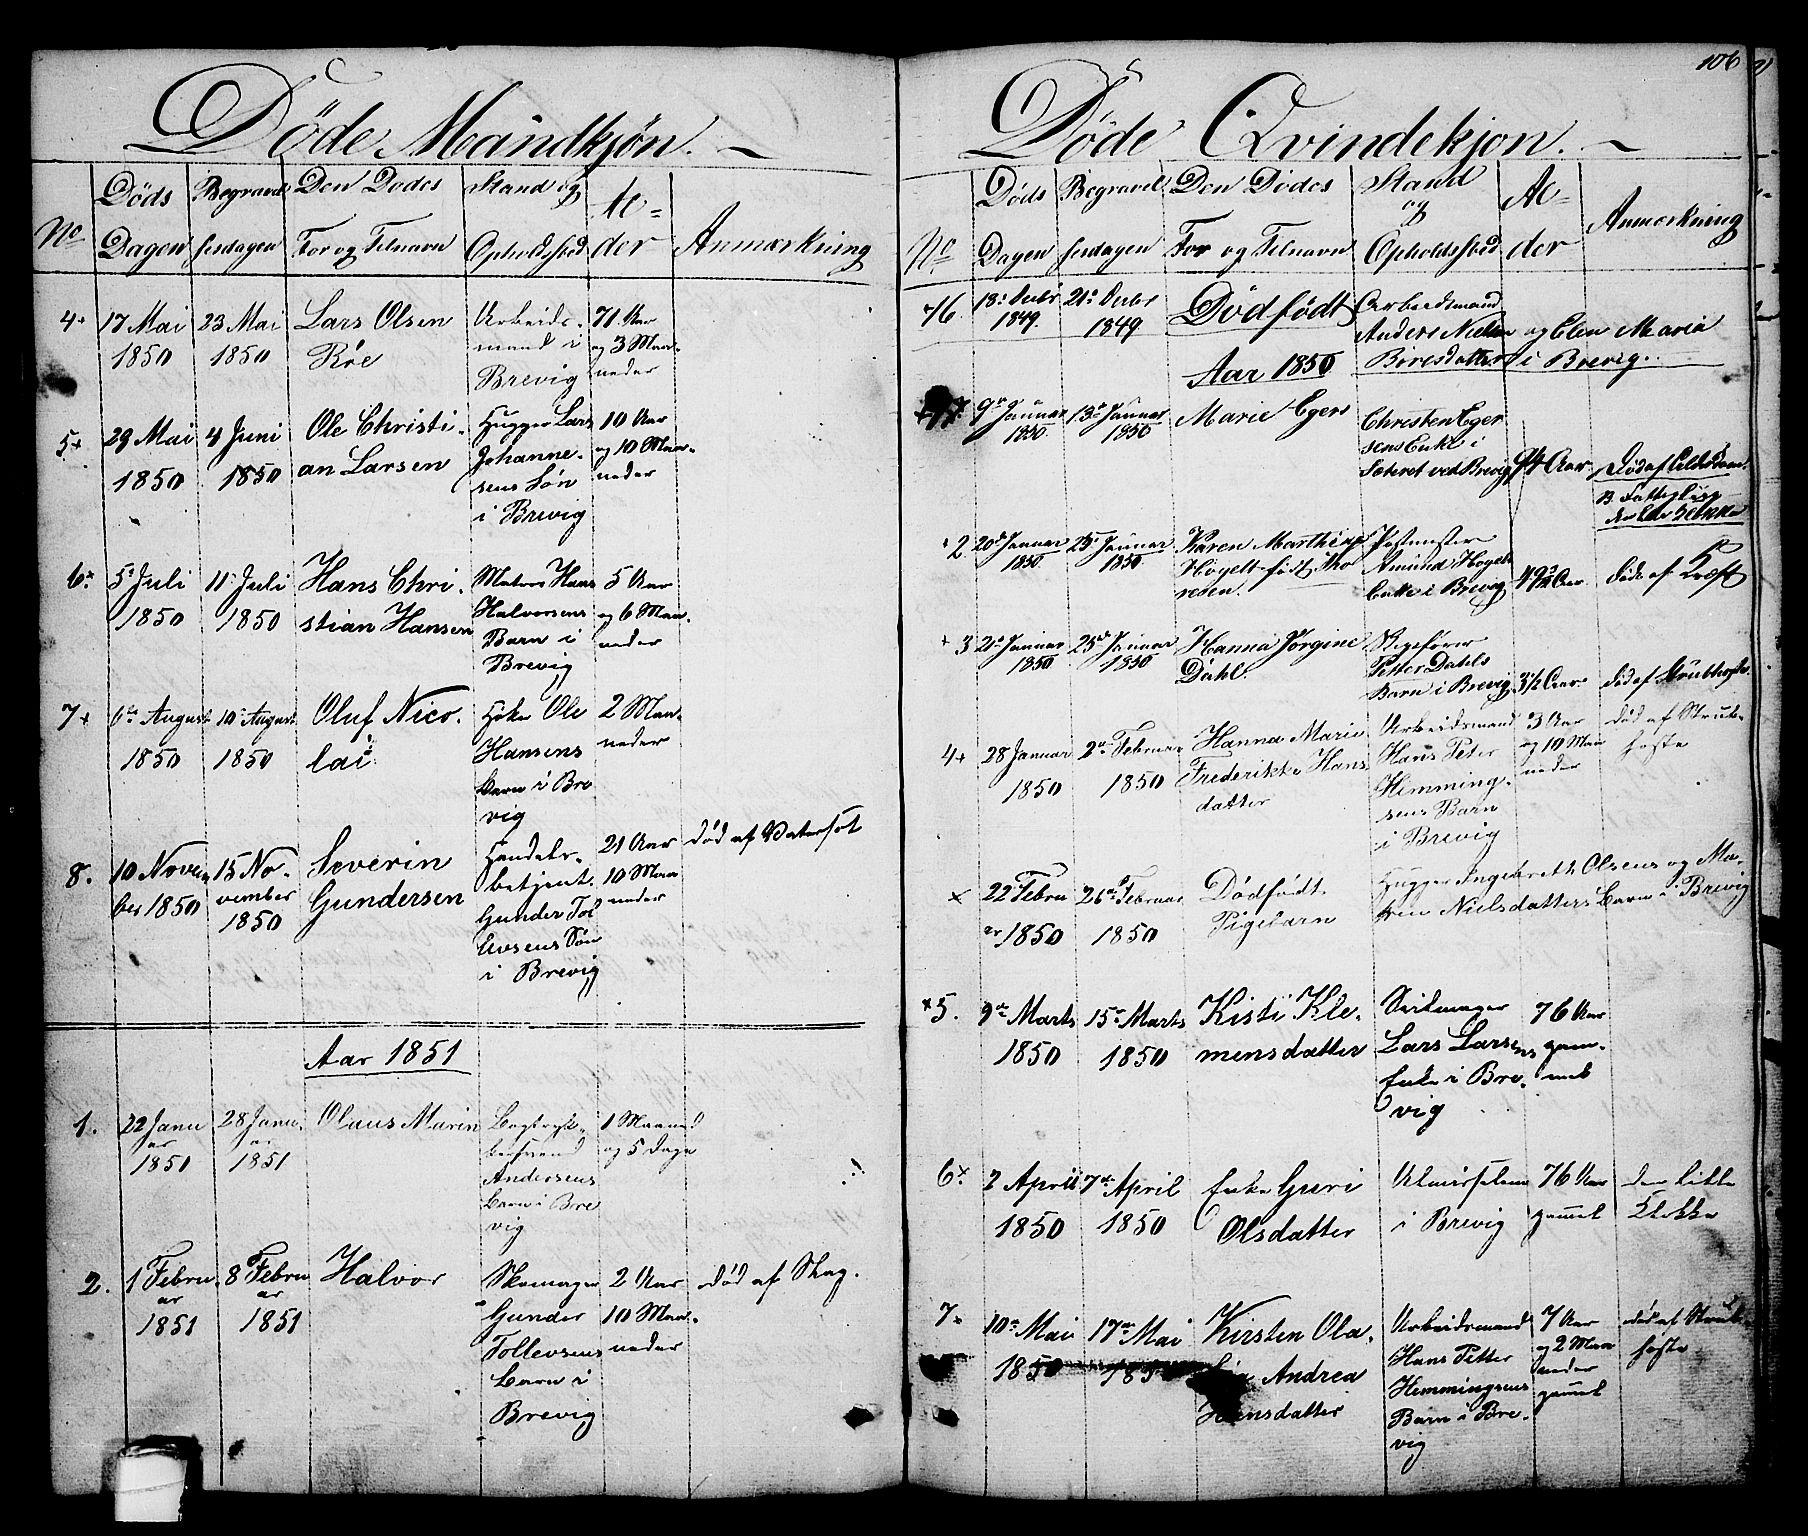 Døde Mandkjøn.
No
Døds Dagen
Begravelsesdagen
Den Dødes For og Tilnavn
Stand og Opholdssted
Alder
Anmærkning
4+
17 Mai
1850
23 Mai
1850
Lars Olsen
Röe
Arbeids-
mand i
Brevig
71 Aar
og 3 Maa-
neder
5+
29 Mai
1850
4 Juni
1850
Ole Christi-
an Larsen
Hugger Lars
Johanne-
sens Søn
i Brevig
10 Aar
og 10 Maa-
neder
6+
5 Juli
1850
11 Juli
1850
Hans Chri-
stian Hansen
Matros Hans
Halvorsens
Barn i
Brevig
5 Aar
og 6 Maa-
neder
7+
6te August
1850
10 August
1850
Oluf Nico-
lai
Høker Ole
Hansens
Barn i Bre
vig
2 Maa-
neder
8.
10 Novem
ber 1850
15 No-
vember
1850
Severin
Gundersen
Handels-
betjent
Gunder Tol
levsens Søn
i Brevig
21 Aar
10 Maa
neder
død af Vatersot
Aar 1851
1.
22 Janu
ar
1851
28 Janu
ar
1851
Olaus Marin
Andersens
Barn i Bre
vig
1 Maaned
og 5 Dage
2.
1 Febru
ar
1851
8 Febru
ar
1851
Halvor
Skomager
Gunder
Tollevsens
Barn i
Brevig
2 Aar
10 Maa-
neder
død af Slag.
106
Døde Qvindekjøn.
No.
Døds Dagen
Begravelsesdagen
Den Dødes For og Tilnavn
Stand og Opholdssted
Alder
Anmærkning
16.
18de Decbr
1849.
21de Decbr
1849
Dødfödt
Arbeidsmand
Anders Nielsen og Elen Maria
i Brevig.
Aar 1850
9de Januar
1850.
13de Januar
1850
Marie Egers
Christen Eger
sens Enke i
ved Brevig
Aar
Død af
2
20de Januar
1850.
25 Januar
1850
Karen Marthine
Høgelt født Tho
resen.
Postmester
Amund Høgelt
Enke i Brevig
Aar
død af Kræft
+ 3
21de Januar
1850
25de Januar
1850
Hanna Jørgine
Dahl.
Petter Dahls
Barn i Brevig
3½ Aar
død af Strubhoste
4+
28 Januar
1850
2den Februar
1850
Hanna Marie
Frederikke Hans
datter
Arbeidsmand
Hans Peter
Hemming-
sens Barn
i Brevig
3 Aar
og 10 Maa
neder
død af Strub-
hoste
x
22 Febru
ar 1850
26de Februar
1850
Dødfödt
Pigebarn
Hugger Ingebreth Olsens og Ma-
ren Nielsdatters Barn i Brevig
+5.
9de Marts
1850
15de Marts
1850
Kisti Kle-
mensdatter
Lars Larsens
Enke i Bre-
vig
76 Aar
gam-
mel
6+
2 April
1850
7de April
1850
Enke Guri
Olsdatter
i Brevig
76 Aar
gammel
den lille
Klokke
7.
10de Mai
1850
17de Mai
1850
Kirsten Ola-
Andrea
Hansdatter
Arbeidsmand
Hans Petter
Hemmingsens
Barn i Bre-
vig
7 Aar
og 2 Maa
neder
gammel
død af Strub-
hoste